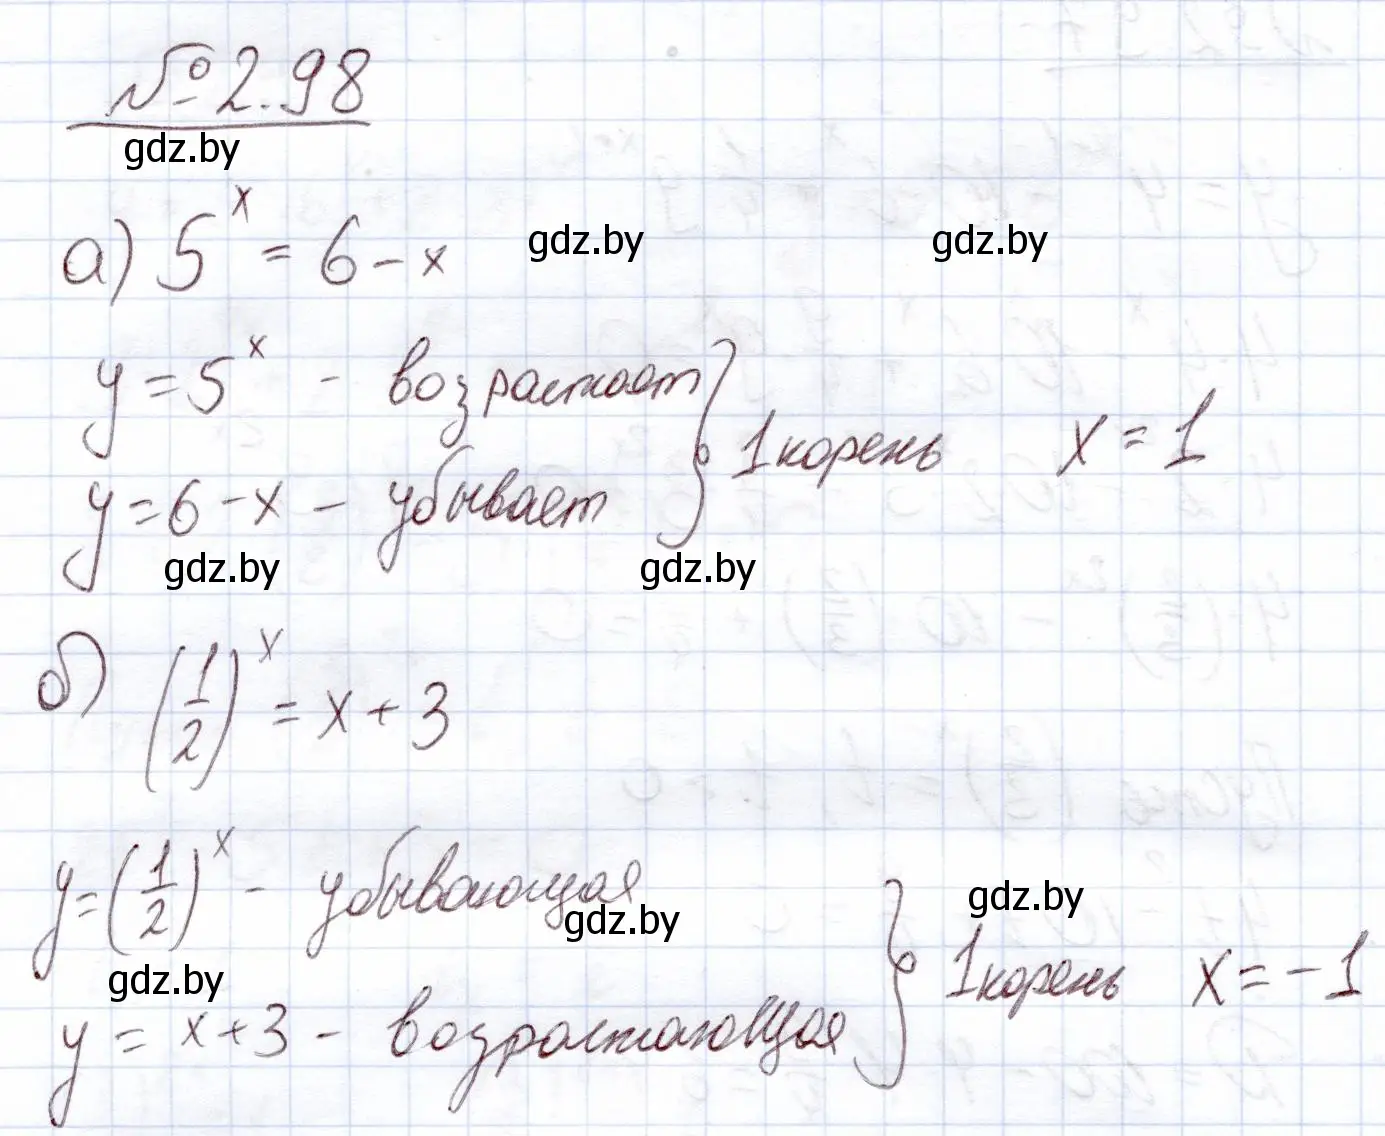 № 2.98
gdz.by
а) 5^x = 6 - x
gdz.by gdz.by
y = 5^x - возрастает
} 1 корень x = 1
y = 6 - x - убывает
gdz.by gdz.by
б) (1/2)^x = x + 3
y = (1/2)^x - убывающая
gdz.by gdz.by
gdz.by
} 1 корень x = -1
y = x + 3 - возрастающая